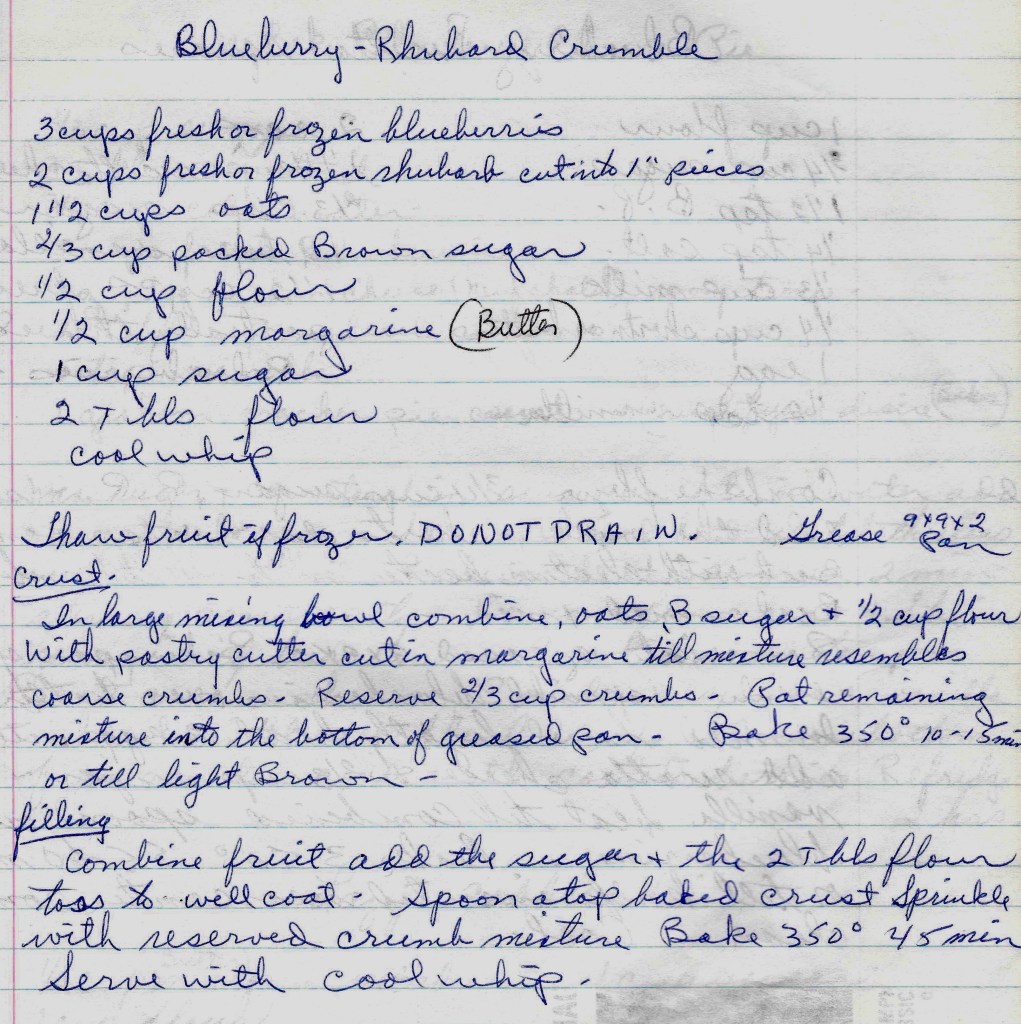 Blueberry - Rhubard Crumble
3 cups fresh or frozen blueberries
2 cups fresh or frozen rhubarb cut into 1" pieces
1 1/2 cups oats
2/3 cup packed Brown sugar
1/2 cup flour
1/2 cup margarine (Butter)
1 cup sugar
2 Tbls flour
cool whip
Thaw fruit if frozen. DO NOT DRAIN. Grease 9x9x2 Pan
Crust.
In large mixing bowl combine, oats, B sugar + 1/2 cup flour
With pastry cutter cut in margarine till mixture resembles
coarse crumbs - Reserve 2/3 cup crumbs - Pat remaining
mixture into the bottom of greased pan - Bake 350° 10-15 min
or till light Brown -
filling
Combine fruit add the sugar + the 2 Tbls flour
toss to well coat - Spoon atop baked crust Sprinkle
with reserved crumb mixture Bake 350° 45 min
Serve with cool whip.